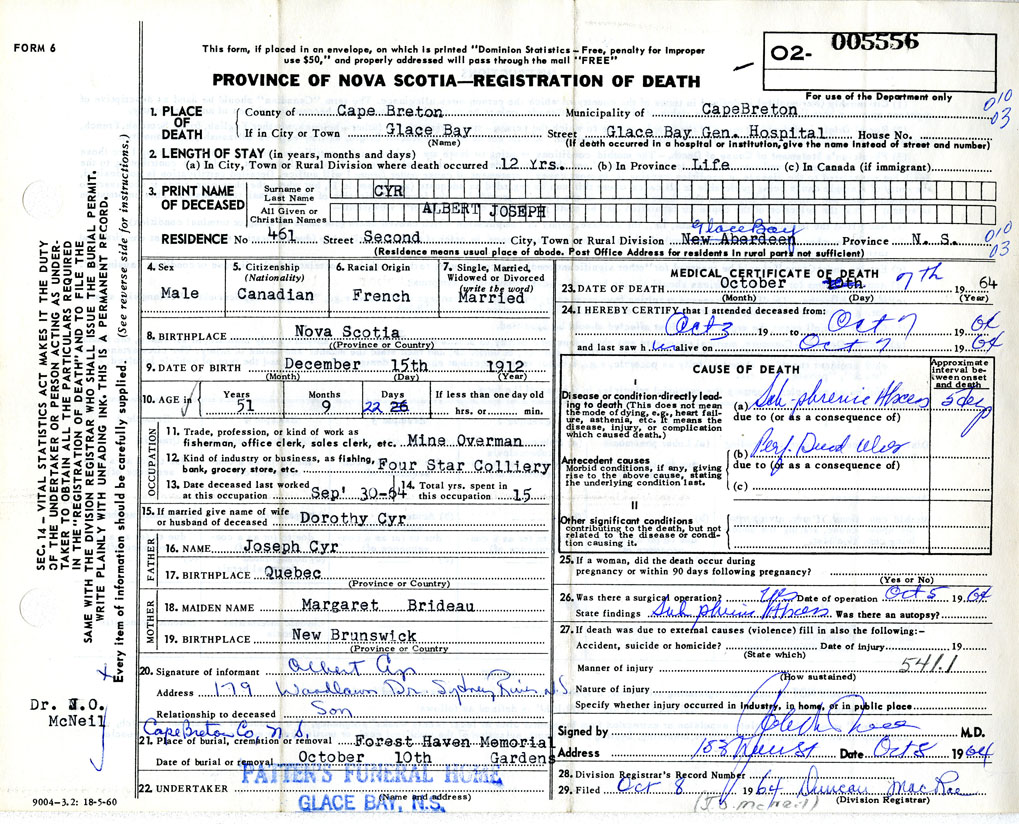 FORM 6
This form, if placed in an envelope, on which is printed "Dominion Statistics – Free, penalty for improper
use $50," and properly addressed will pass through the mail "FREE"
PROVINCE OF NOVA SCOTIA—REGISTRATION OF DEATH
O2- 005556
For use of the Department only
010
03
1. PLACE OF DEATH
County of Cape Breton Municipality of CapeBreton
If in City or Town Glace Bay Street Glace Bay Gen. Hospital House No.
(Name) (If death occurred in a hospital or institution, give the name instead of street and number)
2. LENGTH OF STAY (in years, months and days)
(a) In City, Town or Rural Division where death occurred 12 Yrs. (b) In Province Life (c) In Canada (if immigrant)
3. PRINT NAME OF DECEASED
Surname or Last Name CYR
All Given or Christian Names ALBERT JOSEPH
Glace Bay
RESIDENCE No 461 Street Second City, Town or Rural Division New Aberdeen Province N. S.
010
03
(Residence means usual place of abode. Post Office Address for residents in rural parts not sufficient)
4. Sex
Male
5. Citizenship
(Nationality)
Canadian
6. Racial Origin
French
7. Single, Married,
Widowed or Divorced
(write the word)
Married
8. BIRTHPLACE Nova Scotia
(Province or Country)
9. DATE OF BIRTH December 15th 1912
(Month) (Day) (Year)
10. AGE in Years 51 Months 9 Days 22 26 If less than one day old
hrs. or min.
OCCUPATION
11. Trade, profession, or kind of work as
fisherman, office clerk, sales clerk, etc. Mine Overman
12. Kind of industry or business, as fishing,
bank, grocery store, etc. Four Star Colliery
13. Date deceased last worked
at this occupation Sep' 30-64
14. Total yrs. spent in
this occupation 15
15. If married give name of wife
or husband of deceased Dorothy Cyr
FATHER
16. NAME Joseph Cyr
17. BIRTHPLACE Quebec
(Province or Country)
MOTHER
18. MAIDEN NAME Margaret Brideau
19. BIRTHPLACE New Brunswick
(Province or Country)
20. Signature of informant Albert Cyr
Address 179 Woodlawn Dr. Sydney River N.S.
Relationship to deceased Son
Cape Breton Co, N. S.
21. Place of burial, cremation or removal Forest Haven Memorial
Date of burial or removal October 10th Gardens
22. UNDERTAKER PATTEN'S FUNERAL HOME
(Name and address)
GLACE BAY, N.S.
9004-3.2: 18-5-60
MEDICAL CERTIFICATE OF DEATH
23. DATE OF DEATH October 7th 1964
(Month) (Day) (Year)
24. I HEREBY CERTIFY that I attended deceased from:
Oct 3 19 to Oct 7 64
and last saw him alive on Oct 7 1964
CAUSE OF DEATH
Approximate interval between onset and death
I
Disease or condition directly leading to death (This does not mean the mode of dying, e.g., heart failure, asthenia, etc. It means the disease, injury, or complication which caused death.)
(a) Sub-phrenic Abscess 5 days
due to (or as a consequence of)
Antecedent causes
Morbid conditions, if any, giving rise to the above cause, stating the underlying condition last.
(b) Perf. Duod Ulcer
due to (or as a consequence of)
(c)
II
Other significant conditions
contributing to the death, but not related to the disease or condition causing it.
25. If a woman, did the death occur during
pregnancy or within 90 days following pregnancy?
(Yes or No)
26. Was there a surgical operation? yes Date of operation Oct 5 1964
State findings Sub phrenic Abscess Was there an autopsy?
27. If death was due to external causes (violence) fill in also the following:–
Accident, suicide or homicide? Date of injury 19
(State which)
541.1
Manner of injury
(How sustained)
Nature of injury
Specify whether injury occurred in industry, in home, or in public place
Signed by M.D.
Address Date Oct 8 1964
28. Division Registrar's Record Number
29. Filed Oct 8 1964 Duncan MacRae
(Division Registrar)
SEC. 14 – VITAL STATISTICS ACT MAKES IT THE DUTY
OF THE UNDERTAKER OR PERSON ACTING AS UNDER-
TAKER TO OBTAIN ALL THE PARTICULARS REQUIRED
IN THE "REGISTRATION OF DEATH" AND TO FILE THE
SAME WITH THE DIVISION REGISTRAR WHO SHALL ISSUE THE BURIAL PERMIT.
WRITE PLAINLY WITH UNFADING INK. THIS IS A PERMANENT RECORD.
Every item of information should be carefully supplied. (See reverse side for instructions.)
Dr. J.O.
McNeil